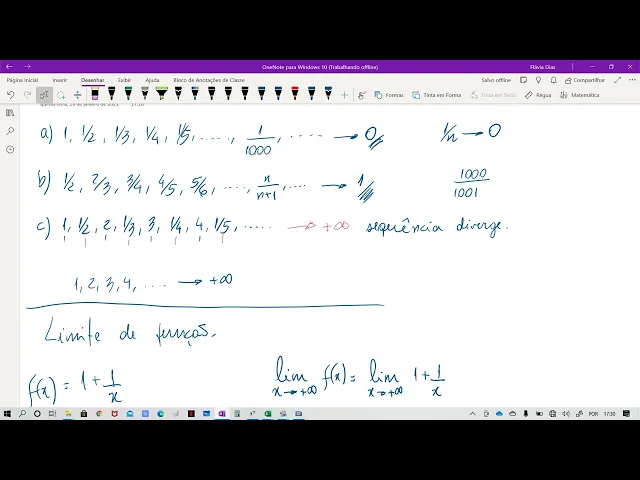 OneNote para Windows 10 (Trabalhando offline)
Flávia Dias
Página Inicial Inserir Desenhar Exibir Ajuda Bloco de Anotações de Classe
Salvo offline Compartilhar
Formas Tinta em Forma Tinta em Texto Régua Matemática
17:26
a) 1, 1/2, 1/3, 1/4, 1/5, ....., 1/1000, ..... → 0 1/n → 0
b) 1/2, 2/3, 3/4, 4/5, 5/6, ...., n/n+1, .... → 1 1000/1001
c) 1, 1/2, 2, 1/3, 3, 1/4, 4, 1/5, ..... → +∞ sequência diverge.
1, 2, 3, 4, .... → +∞
Limite de funções.
f(x) = 1 + 1/x lim x→+∞ f(x) = lim x→+∞ 1 + 1/x
POR 17:30